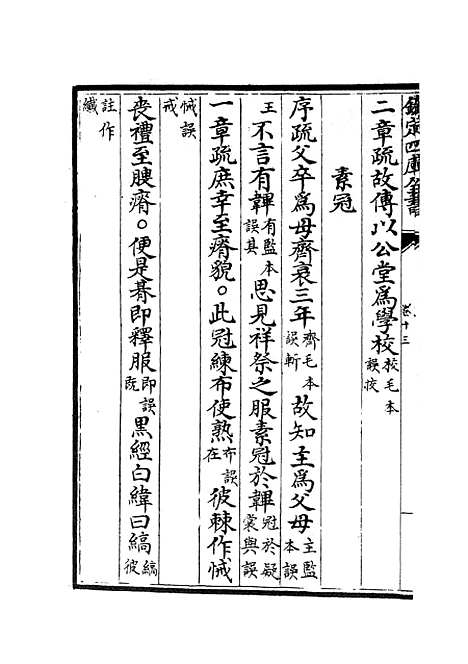 欽定四庫全書 卷十三
二章疏故傳以公堂為學校校毛本誤挍
素冠
序疏父卒為母齊衰三年齊毛本誤斬故知主為父母主監本誤
王不言有韠有監本誤其思見祥祭之服素冠於韠冠於疑裳與誤
一章疏庶幸至瘠貌。此冠練布使熟布誤在彼棘作悈
悈誤戒
喪禮至腴瘠。便是朞即釋服即誤既黑經白緯曰縞縞彼
註作纖